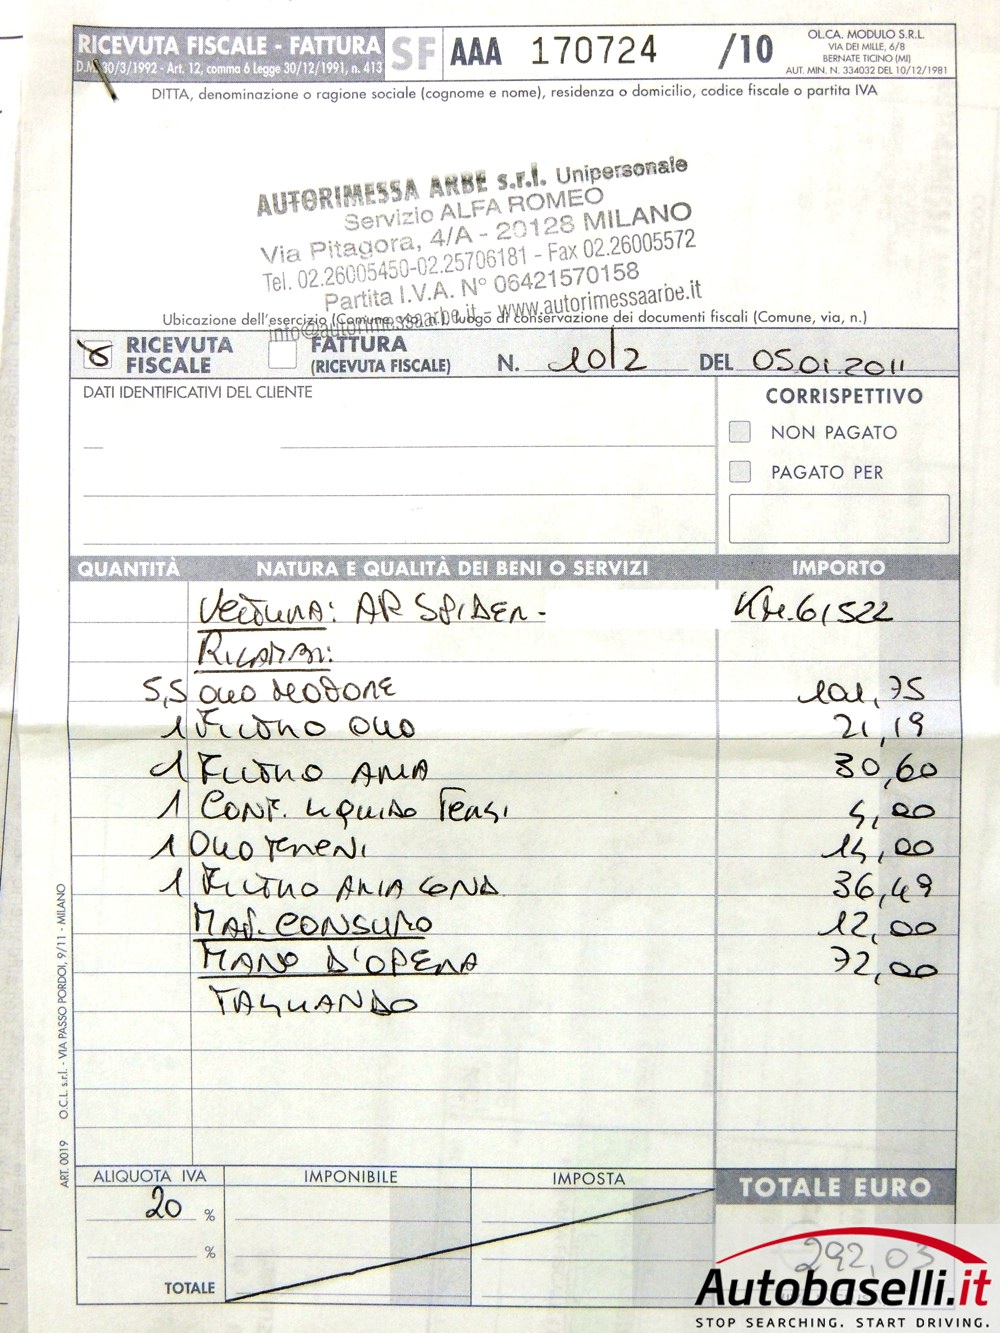 RICEVUTA FISCALE - FATTURA
D.M. 30/3/1992 - Art. 12, comma 6 Legge 30/12/1991, n. 413
SF
AAA 170724 /10
OL.CA. MODULO S.R.L.
VIA DEI MILLE, 6/8
BERNATE TICINO (MI)
AUT. MIN. N. 334032 DEL 10/12/1981
DITTA, denominazione o ragione sociale (cognome e nome), residenza o domicilio, codice fiscale o partita IVA
AUTORIMESSA ARBE s.r.l. Unipersonale
Servizio ALFA ROMEO
Via Pitagora, 4/A - 20128 MILANO
Tel. 02.26005450-02.25706181 - Fax 02.26005572
Partita I.V.A. N° 06421570158
info@autorimessaarbe.it - www.autorimessaarbe.it
Ubicazione dell'esercizio (Comune, via, n.), luogo di conservazione dei documenti fiscali (Comune, via, n.)
RICEVUTA FISCALE
FATTURA (RICEVUTA FISCALE)
N. 10/2 DEL 05.01.2011
DATI IDENTIFICATIVI DEL CLIENTE
CORRISPETTIVO
NON PAGATO
PAGATO PER
QUANTITÀ NATURA E QUALITÀ DEI BENI O SERVIZI IMPORTO
Vettura: AR SPIDER - KM. 61522
RICAMBI:
5,5 OLIO MOTORE 101,75
1 FILTRO OLIO 21,19
1 FILTRO ARIA 30,60
1 CONF. LIQUIDO TERGI 4,00
1 OLIO FRENI 14,00
1 FILTRO ARIA COND. 36,49
MAT. CONSUMO 12,00
MANO D'OPERA 72,00
TAGLIANDO
ART. 0019 O.C.L. s.r.l. - VIA PASSO PORDOI, 9/11 - MILANO
ALIQUOTA IVA IMPONIBILE IMPOSTA TOTALE EURO
20 %
%
TOTALE
292,03
Autobaselli.it
STOP SEARCHING. START DRIVING.